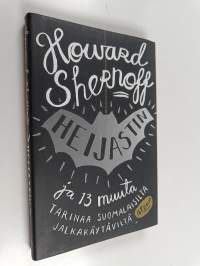 Howard
Shernoff
HEIJASTIN
ja 13 muuta
TARINAA SUOMALAISILTA
JALKAKÄYTÄVILTÄ